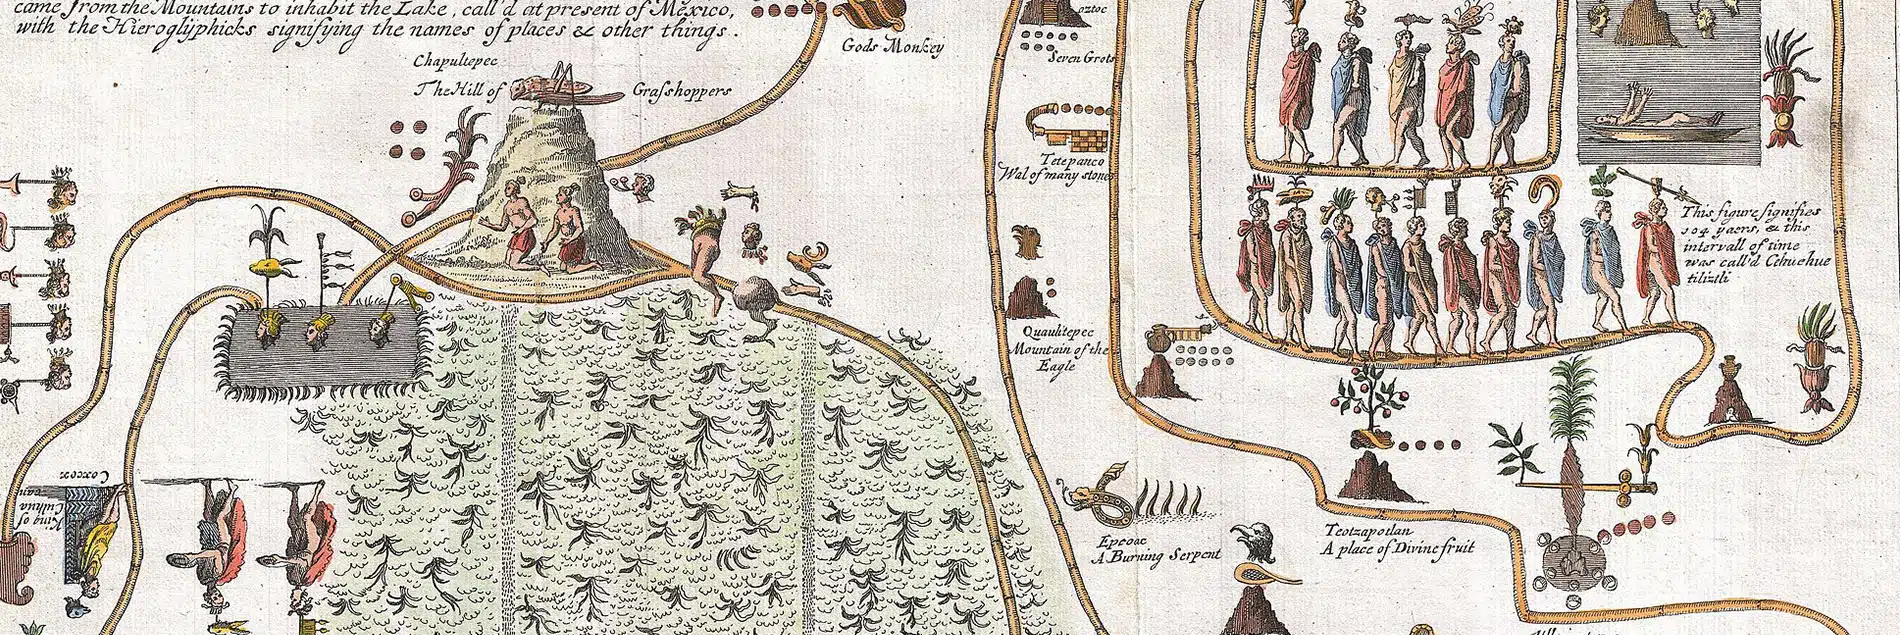 came from the Mountains to inhabit the Lake, call'd at present of México,
with the Hieroglyphicks signifying the names of places & other things.
Chapultepec
The Hill of Grasshoppers
Gods Monkey
oztoc
Seven Grots
Tetepanco
Wal of many stones
Quauhtepec
Mountain of the
Eagle
This figure signifies
104 yaers, & this
intervall of time
was call'd Cehuehue
tiliztli
Coxcox
King of
Culhua
can
Epcoac
A Burning Serpent
Teotzapotlan
A place of Divine fruit